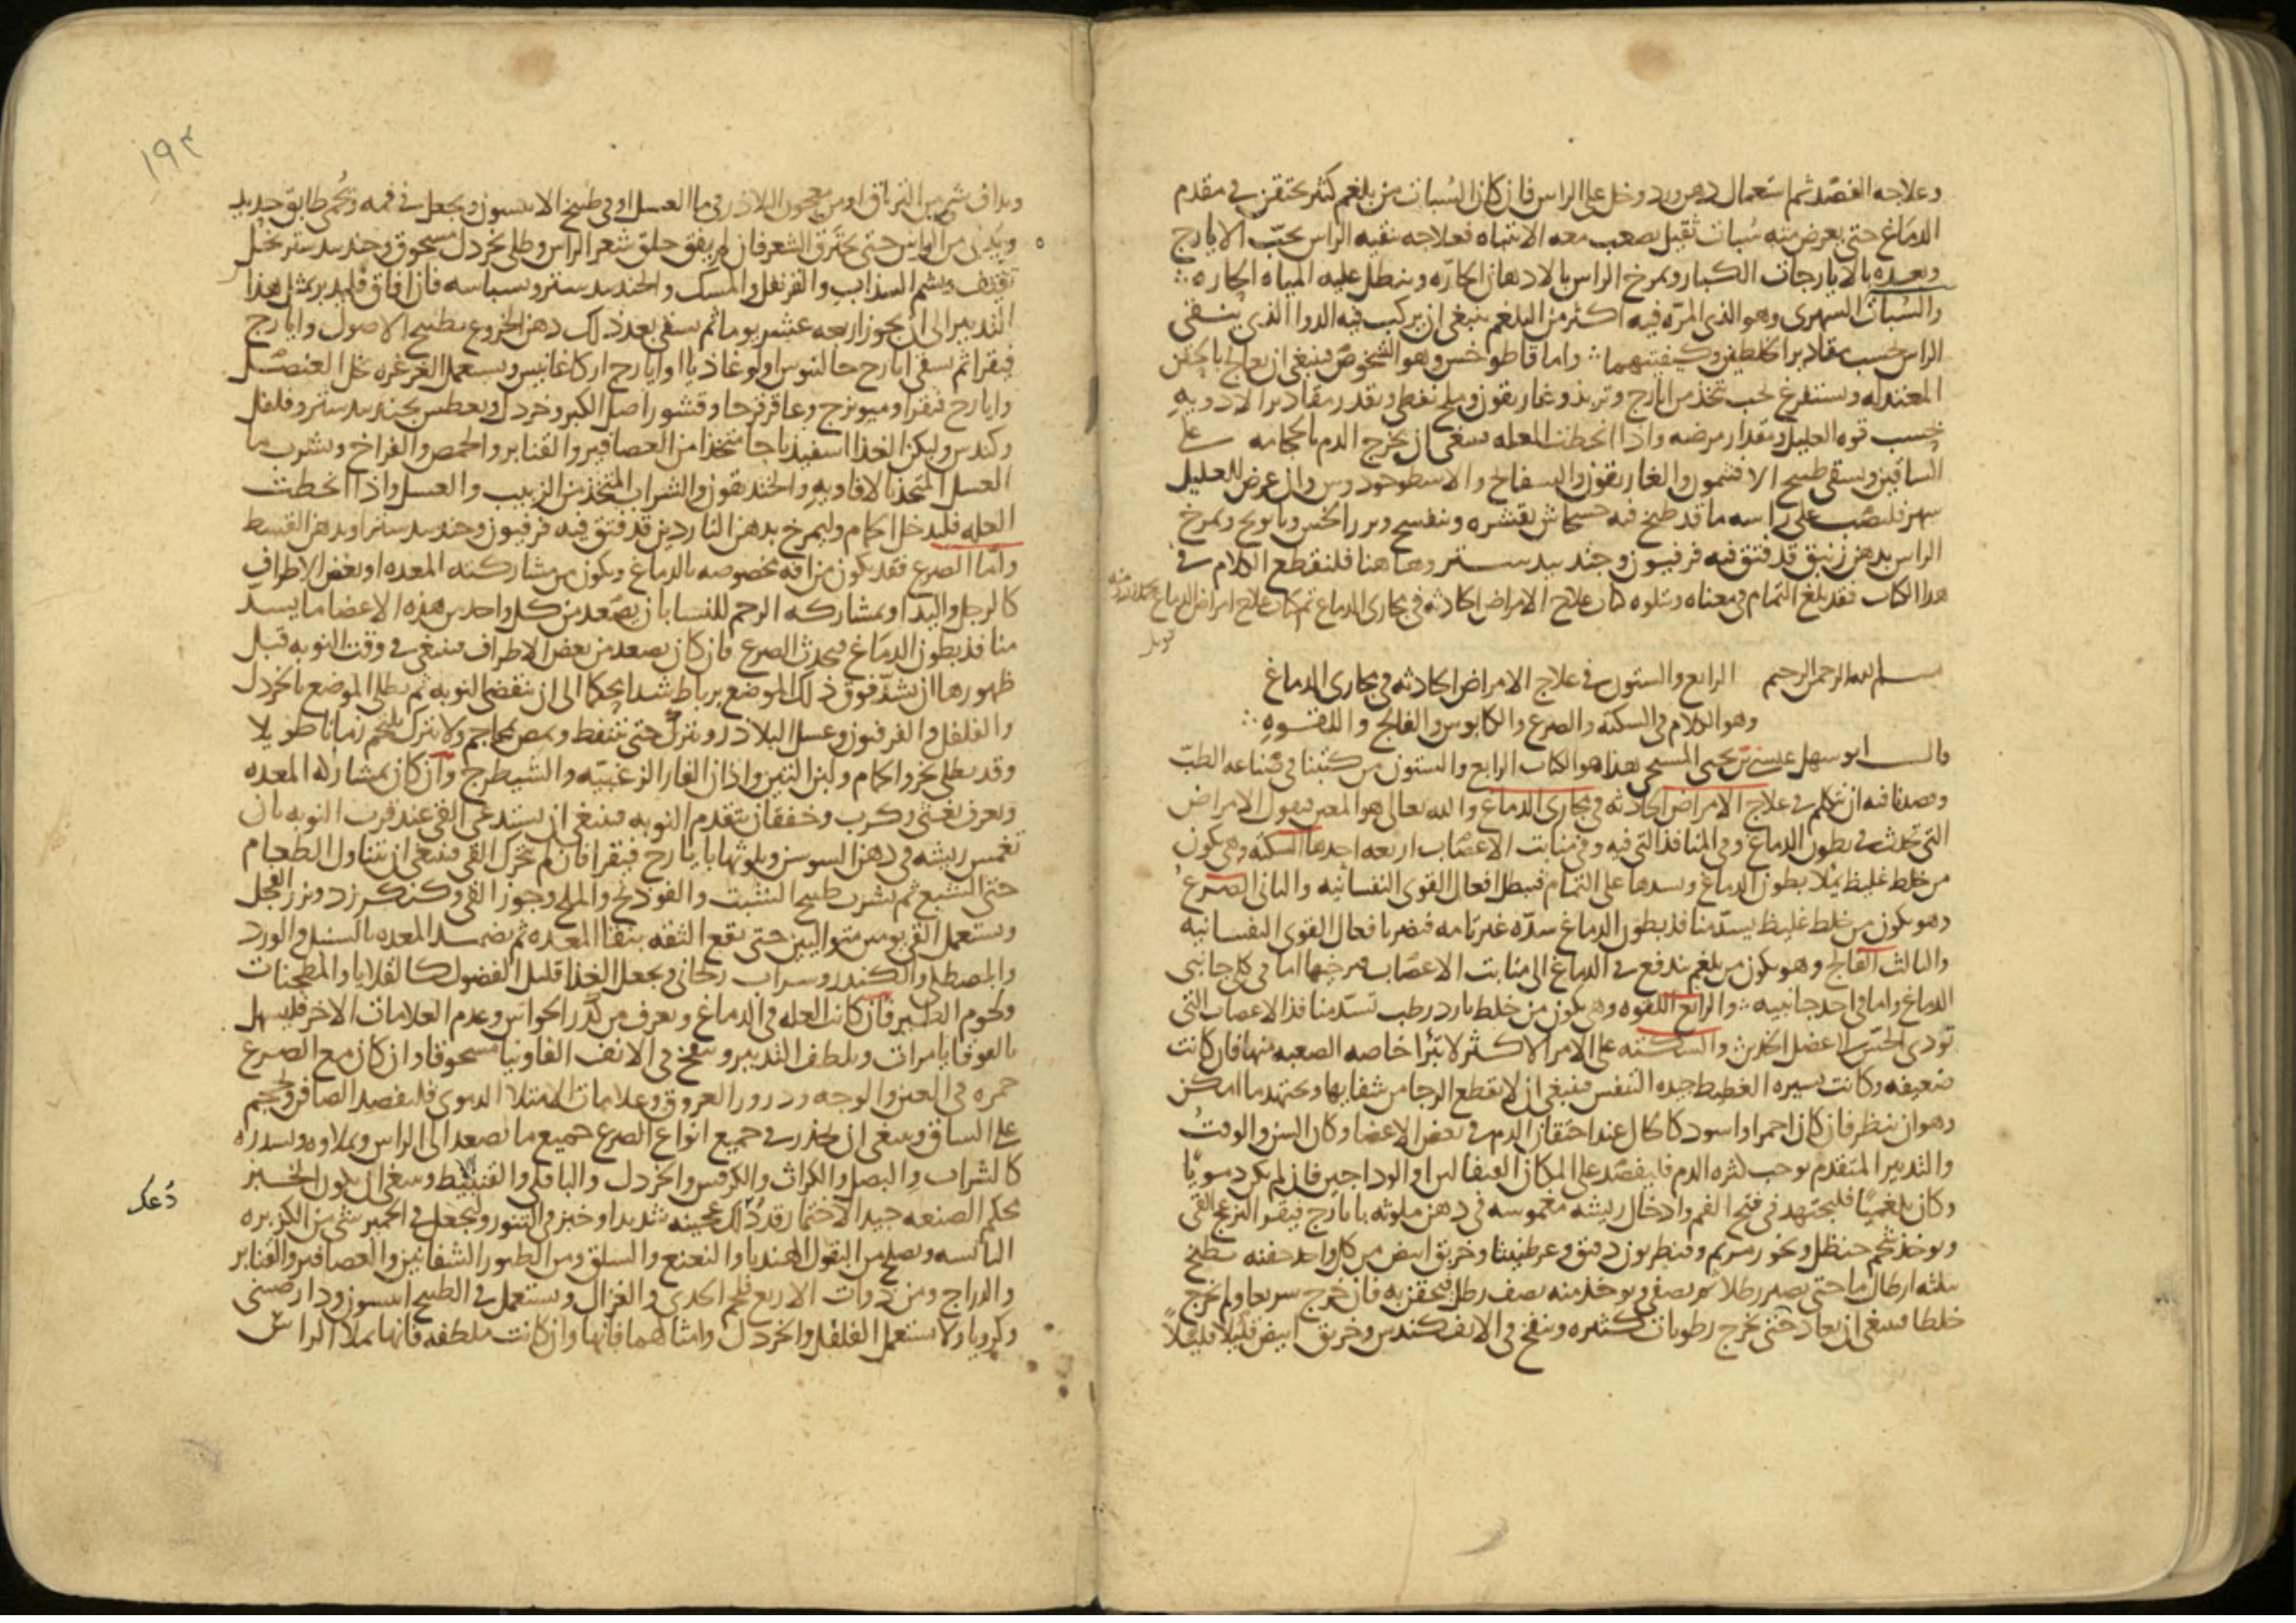 وعلاجه الفصد ثم استعمال دهن ورد وخل على الراس فان كان السبات من بلغم كثير يحتقن في مقدم
الدماغ حتى يعرض منه سبات ثقيل يصعب معه الانتباه فعلاجه تنقيه الراس بحب الايارج
وبعده بالايارجات الكبار ويمرخ الراس بالادهان الحاره وينطل عليه المياه الحاره
والسبات السهرى وهو الذى المره فيه اكثر من البلغم ينبغى ان يركب فيه الدوا الذى ينقى
الراس بحسب مقادير الخلطين وكيفيتهما واما قاطوخس وهو الشخوص فينبغى ان يعالج بالحقن
المعتدله ويستفرغ بحب يتخذ من ايارج وتربد وغاريقون وملح نفطى ويقدر مقادير الادويه
بحسب قوه العليل ومقدار مرضه واذا انحطت العله ينبغى ان يخرج الدم بالحجامه على
الساقين ويسقى طبيخ الافتيمون والغاريقون والبسفايج والاسطوخودوس وان عرض للعليل
سهر فليصب على راسه ما قد طبخ فيه خشخاش بقشره وبنفسج وبزر الخس وبابونج ويمرخ
الراس بدهن زنبق قد فتق فيه فرفيون وجندبيدستر وهاهنا فلنقطع الكلام في
هذا الكتاب فقد بلغ التمام في معناه ويتلوه كتاب علاج الامراض الحادثه في مجارى الدماغ تم كتاب علاج امراض الدماغ
قوبل
بسم الله الرحمن الرحيم الرابع والستون في علاج الامراض الحادثه في مجارى الدماغ
وهو الكلام في السكته والصرع والكابوس والفالج واللقوه
قال ابو سهل عيسى بن يحيى المسيحى هذا هو الكتاب الرابع والستون من كتبنا في صناعه الطب
وقصدنا فيه ان نتكلم في علاج الامراض الحادثه في مجارى الدماغ والله تعالى هو المعين فنقول الامراض
التى تحدث في بطون الدماغ وفي المنافذ التى فيه وفي منابت الاعصاب اربعه احدها السكته وهى تكون
من خلط غليظ يملا بطون الدماغ ويسدها على التمام فيبطل افعال القوى النفسانيه والثانى الصرع
وهو يكون من خلط غليظ يسد منافذ بطون الدماغ سده غير تامه فيضر بافعال القوى النفسانيه
والثالث الفالج وهو يكون من بلغم يندفع في الدماغ الى منابت الاعصاب فيرخيها اما في كلى جانبى
الدماغ واما في احد جانبيه والرابع اللقوه وهى تكون من خلط بارد رطب تسد منافذ الاعصاب التى
تودى الحس الى عضل الخدين والسكته على الامر الاكثر لا تبرا خاصه الصعبه منها فان كانت
ضعيفه وكانت يسيره الغطيط جيده التنفس فينبغى ان لا نقطع الرجا من شفايها ونجتهد ما امكن
وهو ان ينظر فان كان احمر او اسود كالحال عند اختناق الدم في بعض الاعضا وكان السن والوقت
والتدبير المتقدم يوجب كثره الدم فليفصد على المكان القيفالين او الوداجين فان لم يكن دمويا
وكان بلغميا فليجتهد في فتح الفم وادخال ريشه مغموسه في دهن ملوثه بايارج فيقرا لتزعج القى
ويوخذ شحم حنظل وبخور مريم وقنطريون دقيق وعرطنيثا وخربق ابيض من كل واحد حفنه يطبخ
بثلثه ارطال ما حتى يصير رطلا ثم يصفى ويوخذ منه نصف رطل فيحقن به فان خرج سريعا ولم يخرج
خلطا فينبغى ان يعاد حتى يخرج رطوبات كثيره وينفخ في الانف كندس وخربق ابيض قليلا قليلا
١٩٢
ويداف شى من الترياق او من معجون البلاذر في ما العسل او في طبيخ الانيسون ويجعل في فمه ويحمى طابق حديد
ويدنى من الراس حتى يحترق الشعر فان لم يفق حلق شعر الراس وطلى بخردل مسحوق وجندبيدستر بخل
ثقيف ويشم السذاب والقرنفل والمسك والجندبيدستر وبسباسه فان افاق فليدبر بمثل هذا
التدبير الى ان يجوز اربعه عشر يوما ثم يسقى بعد ذلك دهن الخروع بطبيخ الاصول وايارج
فيقرا ثم يسقى ايارج جالينوس او لوغاذيا او ايارج اركاغانيس ويستعمل الغرغره بخل العنصل
وايارج فيقرا وميويزج وعاقرقرحا وقشور اصل الكبر وخردل ويعطس بجندبيدستر وفلفل
وكندس وليكن الغذا اسفيدباجا متخذا من العصافير والقنابر والحمص والفراخ ويشرب ما
العسل المتخذ بالافاويه والخنديقون والشراب المتخذ من الزبيب والعسل واذا انحطت
العله فليدخل الحمام وليمرخ بدهن الناردين قد فتق فيه فرفيون وجندبيدستر او بدهن القسط
واما الصرع فقد يكون من افه مخصوصه بالدماغ ويكون من مشاركته المعده او بعض الاطراف
كالرجل واليد او بمشاركه الرحم للنسا بان يصعد من كل واحد من هذه الاعضا ما يسد
منافذ بطون الدماغ فيحدث الصرع فان كان يصعد من بعض الاطراف فينبغى في وقت النوبه قبل
ظهورها ان يشد فوق ذلك الموضع برباط شدا محكما الى ان تنقضى النوبه ثم يطلى الموضع بالخردل
والفلفل والفرفيون وعسل البلاذر ويترك حتى يتنفط ويمص بمحاجم ولا يترك يلتحم زمانا طويلا
وقد يطلى بخرو الحمام ولبن التين واذان الفار الزغبيه والشيطرج وان كان بمشاركه المعده
ويعرف بغثى وكرب وخفقان يتقدم النوبه فينبغى ان يستدعى القى عند قرب النوبه بان
تغمس ريشه في دهن السوسن ويلوثها بايارج فيقرا فان لم يتحرك القى فينبغى ان يتناول الطعام
حتى الشبع ثم يشرب طبيخ الشبت والفودنج والملح وجوز القى وكنكرزد وبزر الفجل
ويستعمل القى يومين متواليين حتى تقع الثقه بنقا المعده ثم يضمد المعده بالسنبل والورد
والمصطكى والكندر وشراب ريحانى ويجعل الغذا قليل الفضول كالقلايا والمطجنات
ولحوم الطير فان كانت العله في الدماغ ويعرف من كدر الحواس وعدم العلامات الاخر فليسهل
بالقوقايا مرات ويلطف التدبير وينفخ في الانف الفاوانيا مسحوقا وان كان مع الصرع
حمره في العين والوجه ودرور العروق وعلامات الامتلا الدموى فليفصد الصافن ويحجم
على الساق وينبغى ان يحذر في جميع انواع الصرع جميع ما يصعد الى الراس ويملاوه ويسدره
كالشراب والبصل والكراث والكرفس والخردل والباقلى والقنبيط وينبغى ان يكون الخبز
محكم الصنعه جيد الاختمار قد دلك عجينه شديدا وخبز في التنور وليجعل في الخمير شى من الكزبره
دعك
اليابسه ويصلح من البقول الهندبا والنعنع والسلق ومن الطيور الشفانين والعصافير والقنابر
والدراج ومن ذوات الاربع فلحم الجدى والغزال ويستعمل في الطبيخ انيسون ودارصينى
وكرويا ولا يستعمل الفلفل والخردل وامثالهما فانها وان كانت ملطفه فانها تملا الراس